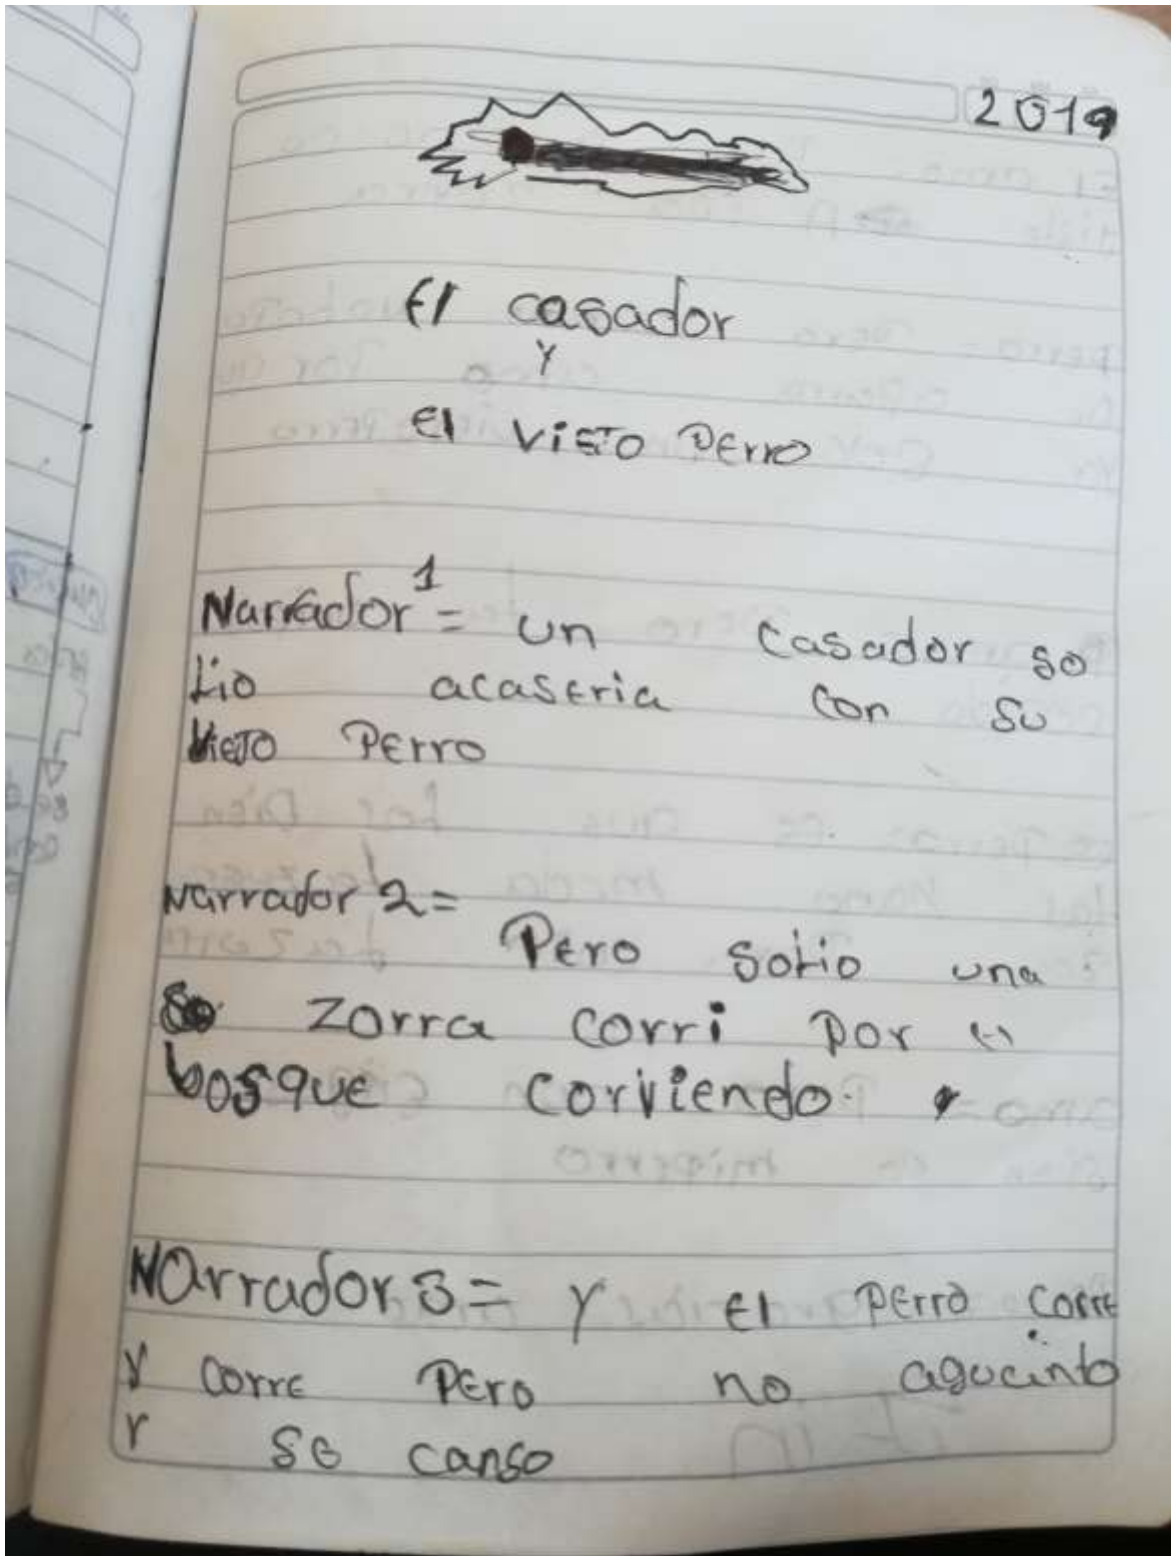 2019
El casador
Y
El visto perro
Narrador 1 = un casador so
lio acaseria con su
viejo perro
Narrador 2 =
Pero solio una
zorra corri por el
bosque corriendo.
Narrador 3 = Y el perro corre
Y corre pero no aguanto
Y se canso